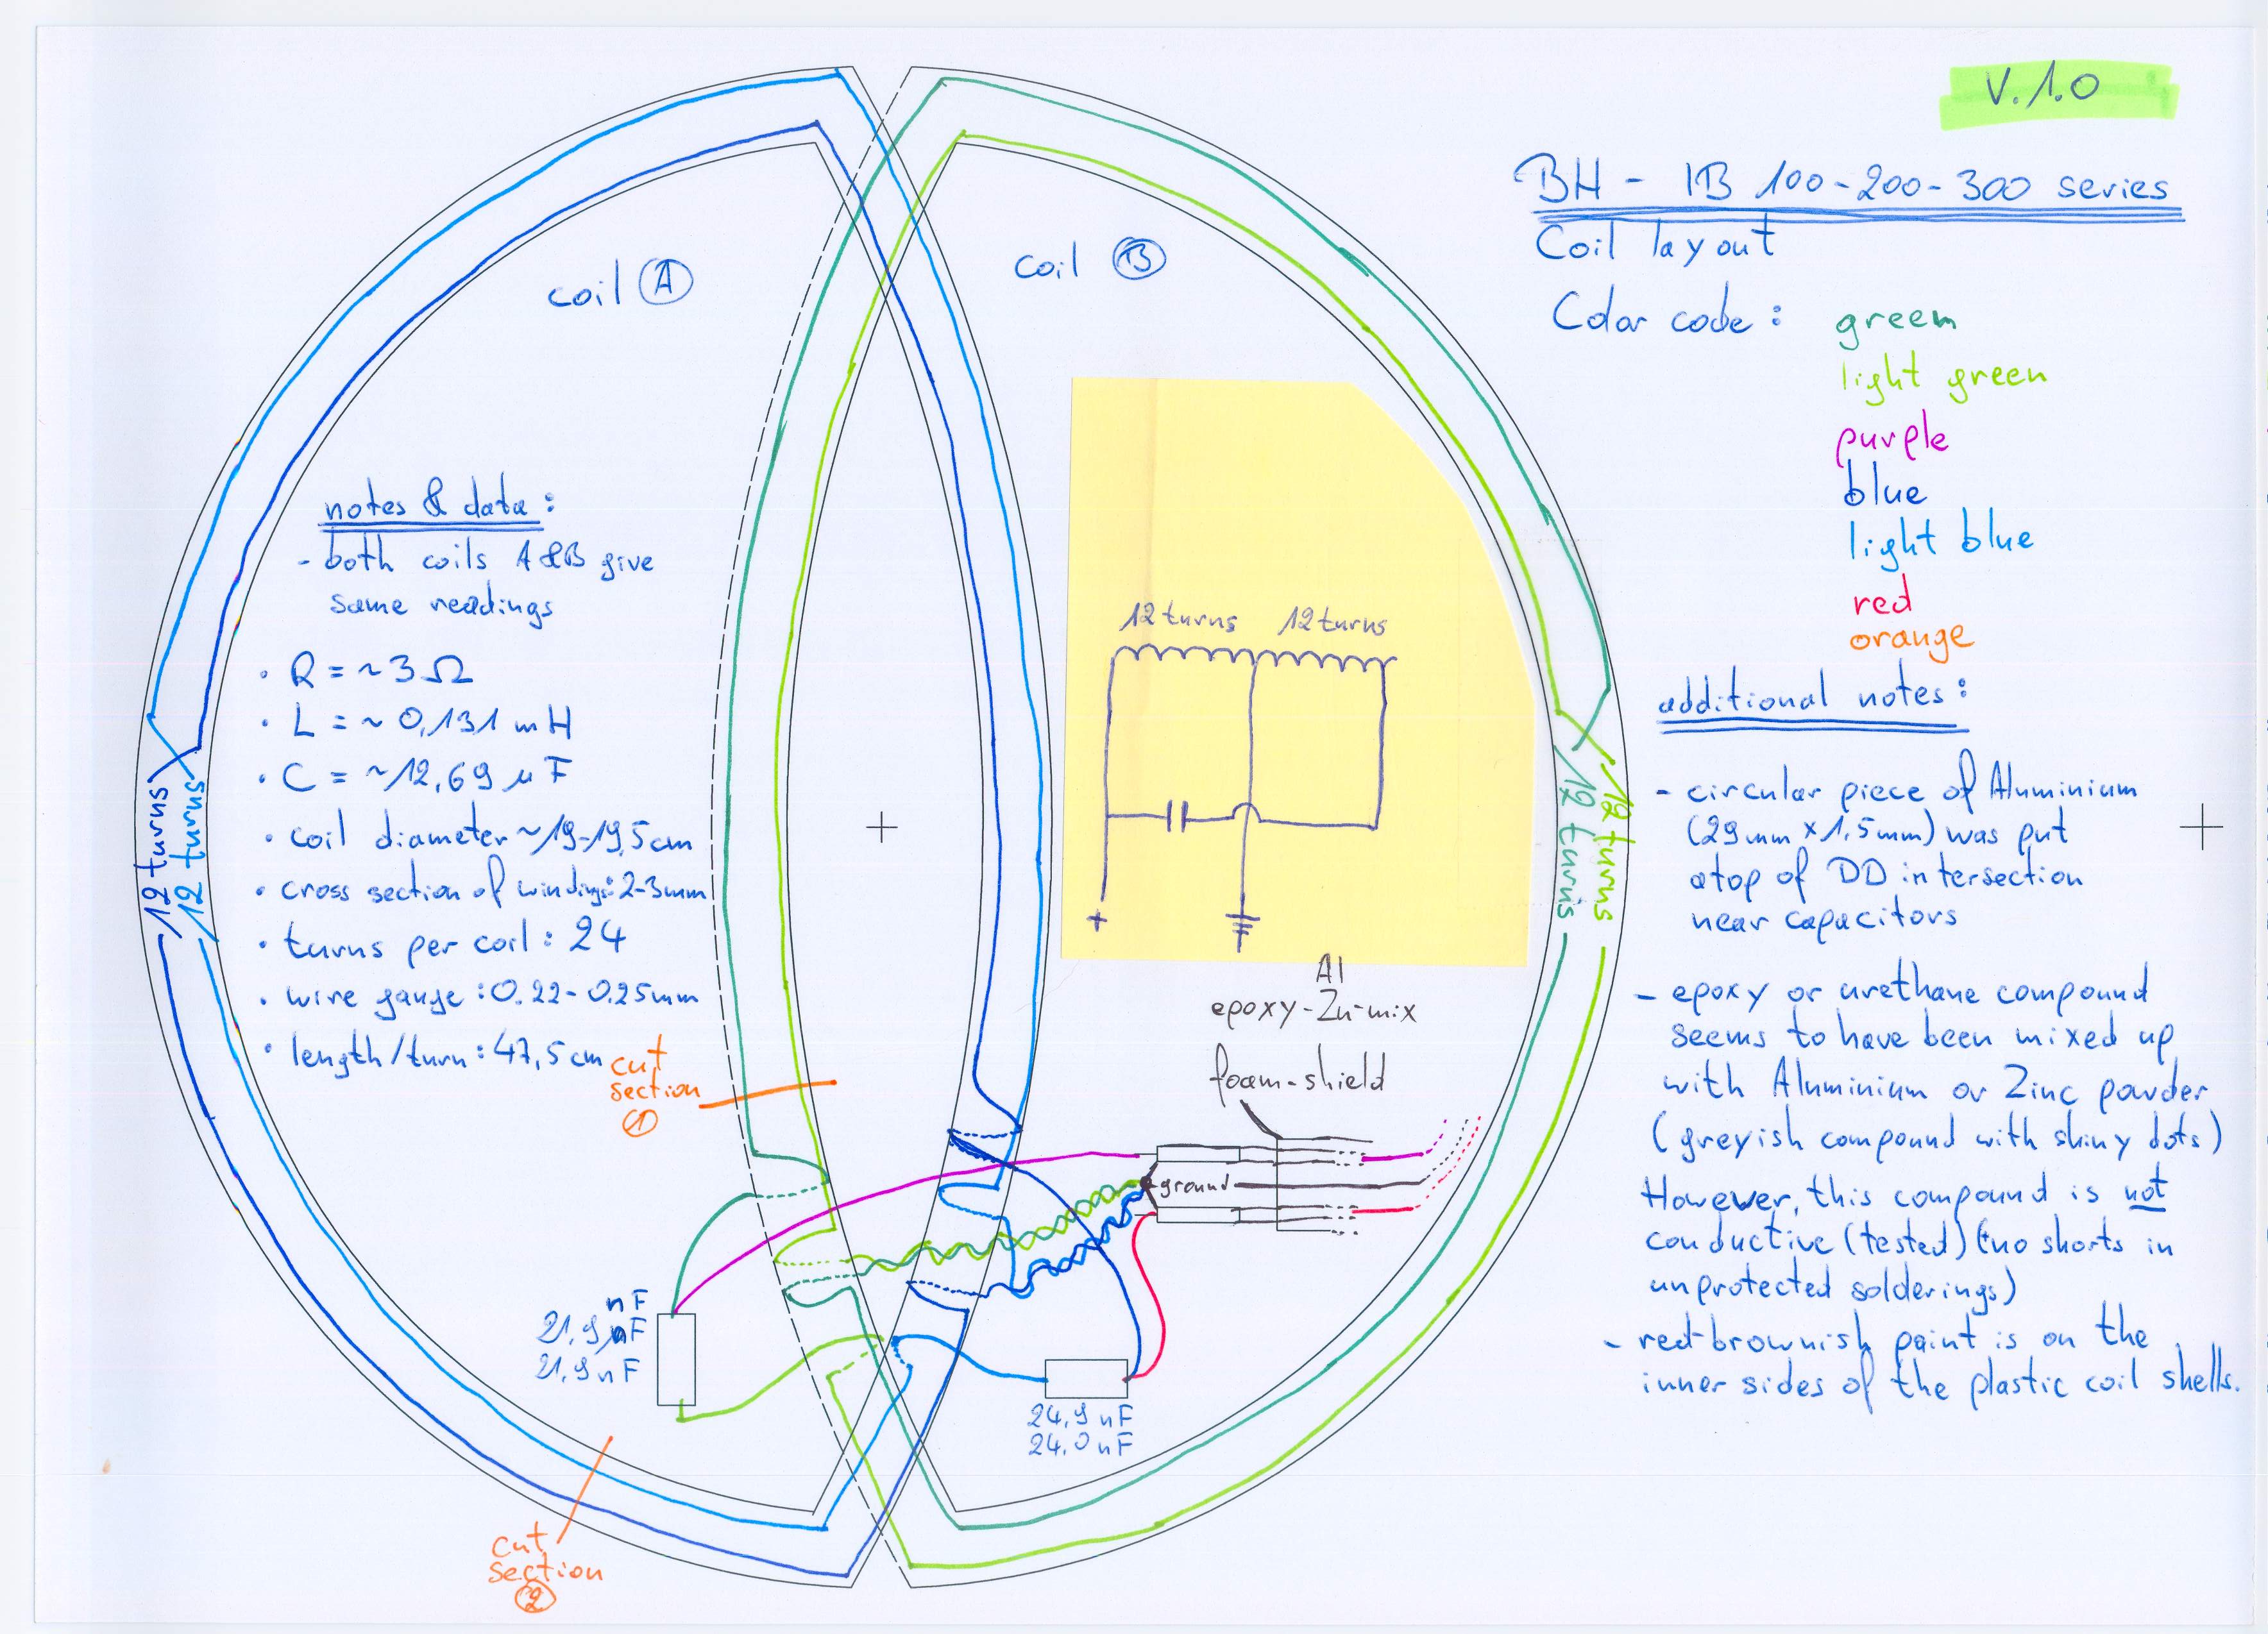 V.1.0
BH - IB 100-200-300 series
Coil layout
Color code : green
light green
purple
blue
light blue
red
orange
coil A
coil B
notes & data :
- both coils A&B give
same readings
• R = ~3 Ω
• L = ~ 0,131 mH
• C = ~12,69 µF
• coil diameter ~19-19,5cm
• cross section of windings: 2-3mm
• turns per coil : 24
• wire gauge : 0.22 - 0.25mm
• length/turn : 47,5 cm
12 turns
12 turns
12 turns 12 turns
+
12 turns
12 turns
Al
epoxy-Zn-mix
foam-shield
ground
cut
section
1
nF
21,9 nF
21,9 nF
24,9 nF
24,0 nF
cut
section
2
additional notes :
- circular piece of Aluminium
(29mm x 1,5mm) was put
atop of DD intersection
near capacitors
- epoxy or urethane compound
seems to have been mixed up
with Aluminium or Zinc powder
(greyish compound with shiny dots)
However, this compound is not
conductive (tested) (no shorts in
unprotected solderings)
- red-brownish paint is on the
inner sides of the plastic coil shells.